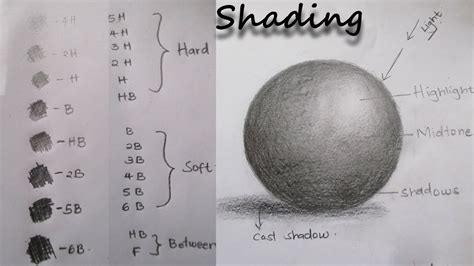 Shading
-4H
-3H
-2H
-H
-B
-HB
-2B
-5B
-6B
5H
4H
3H
2H
H
HB
Hard
B
2B
3B
4B
5B
6B
Soft
HB
F
Between
Light
Highlight
Midtone
shadows
cast shadow.